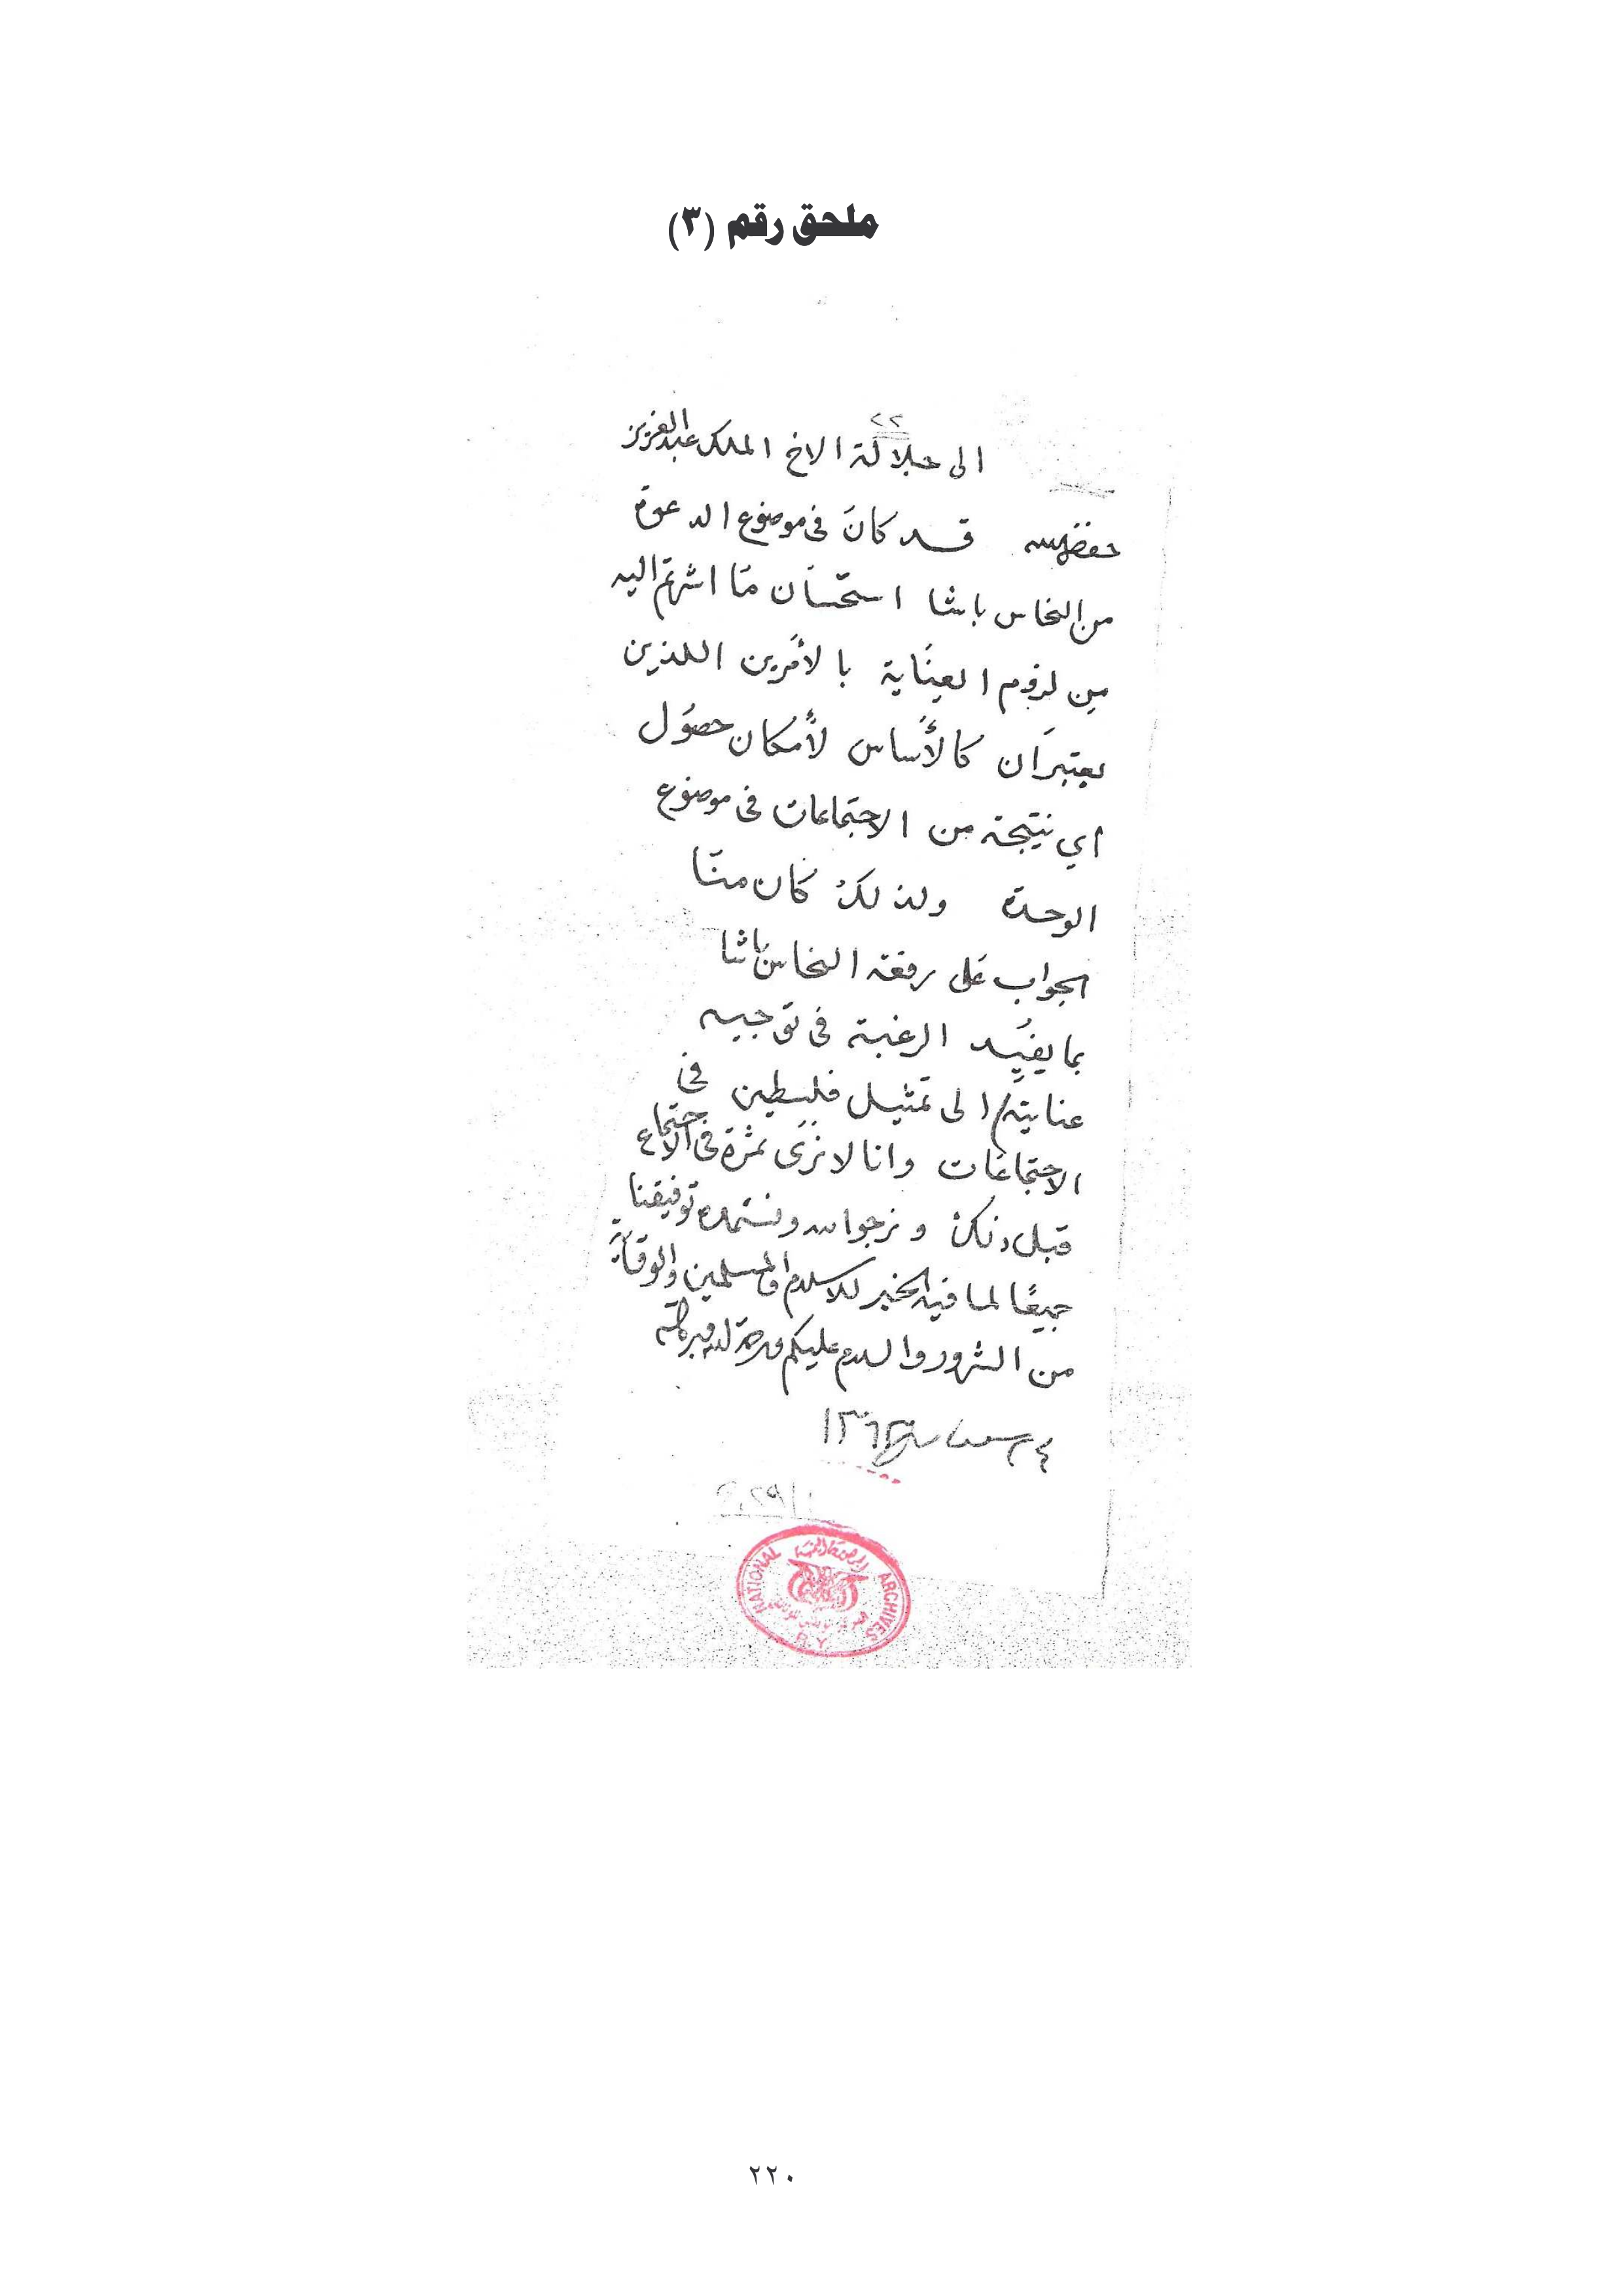 ملحق رقم (٣)
٢٢
الى جلالة الاخ الملك عبدالعزيز
حفظه الله قد كان في موضوع الدعوة
من النحاس باشا استحسان ما اشرتم اليه
من لزوم العناية بالأمرين اللذين
يعتبران كالأساس لأمكان حصول
أي نتيجة من الاجتماعات في موضوع
الوحدة ولذلك كان منا
الجواب على رفعة النحاس باشا
بما يفيد الرغبة في توجيه
عنايته الى تمثيل فلسطين في
الاجتماعات وانا لا نرى ثمرة في الاجتماع
قبل ذلك ونرجوا الله ونستمده توفيقنا
جميعًا لما فيه الخير للاسلام والمسلمين والوقاية
من الشرور والسلام عليكم ورحمة الله وبركاته
١٣٦٣
NATIONAL ARCHIVES
R.Y
٢٢٠